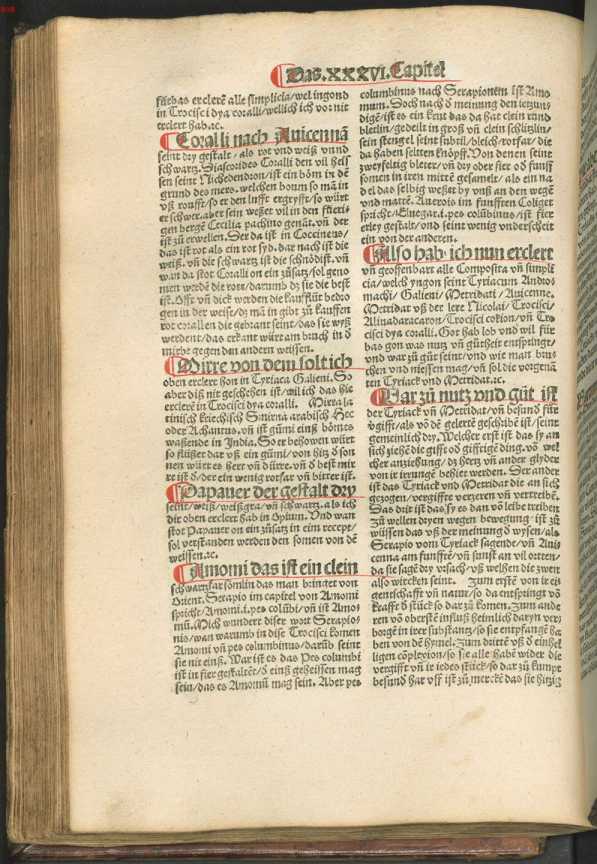 Das. XXXVI. Capitel
stiebas erclere alle simplicia/wel ingond
in Trocisci dya coralli/wellich ich vor nit
erclert hab.ꝛc.
Coralli nach Auicennā
seint dry gestalt/als rot vnd weiß vnnd
schwartz. Diascorides Coralli den vil heis
sen seint Nichedendron/ist ein böm in dē
grund des mers. welchen boum so mā in
vß roufft/so er den lufft ergryfft/so würt
er schwer. aber sein weßet vil in den
gen bergē Cecilia pachino genāt. vn̄ der
ist zů erwellen. Der da ist in Coccineus/
das ist rot als ein rot syd. dar nach ist die
weiß. vn̄ die schwartz ist die schnödist. vn̄
wan da stot Coralli on ein zůsatz/sol geno
men werdē die rotē/darumb dz sie die best
ist. Offt vn̄ dick werden die kaufflüt betro
gen in der weise/dz mā in gibt zů kauffen
rot corallen die gebrant seint/das sie wyß
werdent/das erkant würt am bruch in d̄
mirbe gegen den andern weissen.
Mirre von dem solt ich
oben erclert hon in Tyriaca Galieni. So
aber diß nit geschehen ist/wil ich das hie
erclerē in Trocisci dya coralli. Mirra la
tinisch kriechisch Smirna arabisch Hec
oder Achantus. vn̄ ist gümi einß bömes
waßende in India. So er behowen würt
so flüßet dar vß ein gümi/von hitz d̄ son
nen würt es hert vn̄ dürre. vn̄ d̄ best mir
re ist d̄/der ein wenig rotfar vn̄ bitter ist.
Papauer der gestalt dry
seint/weiß/weißgra/vn̄ schwartz. als ich
dir oben erclert hab in Opium. Vnd wan
stot Papauer on ein zůsatz in eim recept/
sol verstanden werden den somen von dē
weissen.ꝛc.
Amomi das ist ein clein
schwartzfar sömlin das man bringet von
Orient. Serapio im capitel von Amomi
spricht/Amomi.i.pes colūbi/vn̄ ist Amo
mū. Mich wundert diser wort Serapio
nis/wan warumb in dise Trocisci komen
Amomi vn̄ pes columbinus/darūb seint
sie nit einß. War ist es das Pes columbi
ist in fier gestaltēt/d̄ einß geheissen mag
sein/das es Amomū mag sein. Aber pes
columbinus nach Serapionem ist Amo
mum. Soch nach d̄ meinung den ietzuns
dige/ist es ein krut das da hat clein rund
bletlin/geteilt in groß vn̄ clein schlitzlin/
sein stengel seint subtil/bleich/rotfar/die
da haben seltten knöpff. Von denen seint
zweyfeltig bletter/vn̄ dry oder fier od fünff
somen in iren mitte gesamelt/als ein na
del das selbig weßet by vnß an den wegē
vnd matte. Auerois im fünfften Coliget
spricht/Elnegar.i.pes colūbinus/ist fier
erley gestalt/vnd seint wenig vnderscheit
ein von der anderen.
Also hab ich nun erclert
vn̄ geoffenbart alle Composita vn̄ simpli
cia/welch yngon seint Tyriacum Andro
machi/Galieni/Metridati/Auicenne.
Metridat vß der lere Nicolai/Trocisci/
Allnadaracaron/Trocisci cokion/vn̄ Tro
cisci dya coralli. Got hab lob vnd wil für
bas gon was nutz vn̄ güthett entspringt/
vnd war zů gůt seint/vnd wie man bru
chen vnd niessen mag/vn̄ sol die vorgenā
ten Tyriack vnd Metridat.ꝛc.
Dar zů nutz vnd gůt ist
der Tyriack vn̄ Metridat/vn̄ besund für
vgifft/als vō dē gelerte geschribē ist/seint
gemeinlich dry. Welcher erst ist das sy an
sich ziehē die gifft od gifftigē ding. vō wel
cher anziehung/dz hertz vn̄ ander glyder
von ir irrung behüt werden. Der ander
ist das Tyriack vnd Metridat die an sich
gezogen/vergifft verzeren vn̄ vertreibē.
Das drit ist das sy es dan vō leibe treiben
Zů wellen diszen wegen bewegung ist zů
wüssen das vß der meinung d̄ wysen/als
Serapio vom Tyriack sagende/vn̄ Aui
cenna am fünfftē/vn̄ sunst an vil orten/
da sie sagē dry vrsach/vß welhen die zwen
also wircken seint. Zum erstē von ir ei
gentschafft vn̄ natur/so da entspringt vō
krafft d̄ stück so dar zů komen. Zum ande
ren vō oberste influß heimlich daryn ver
borgē in irer substantz/so sie entpfangē ha
ben von dē hymel. Zum drittē vß d̄ einhel
ligen cōplexion/so sie alle habē wider die
vergifft vn̄ ir iedes stück/so dar zů kumpt
besund har vß ist zů mercke das sie hitzig